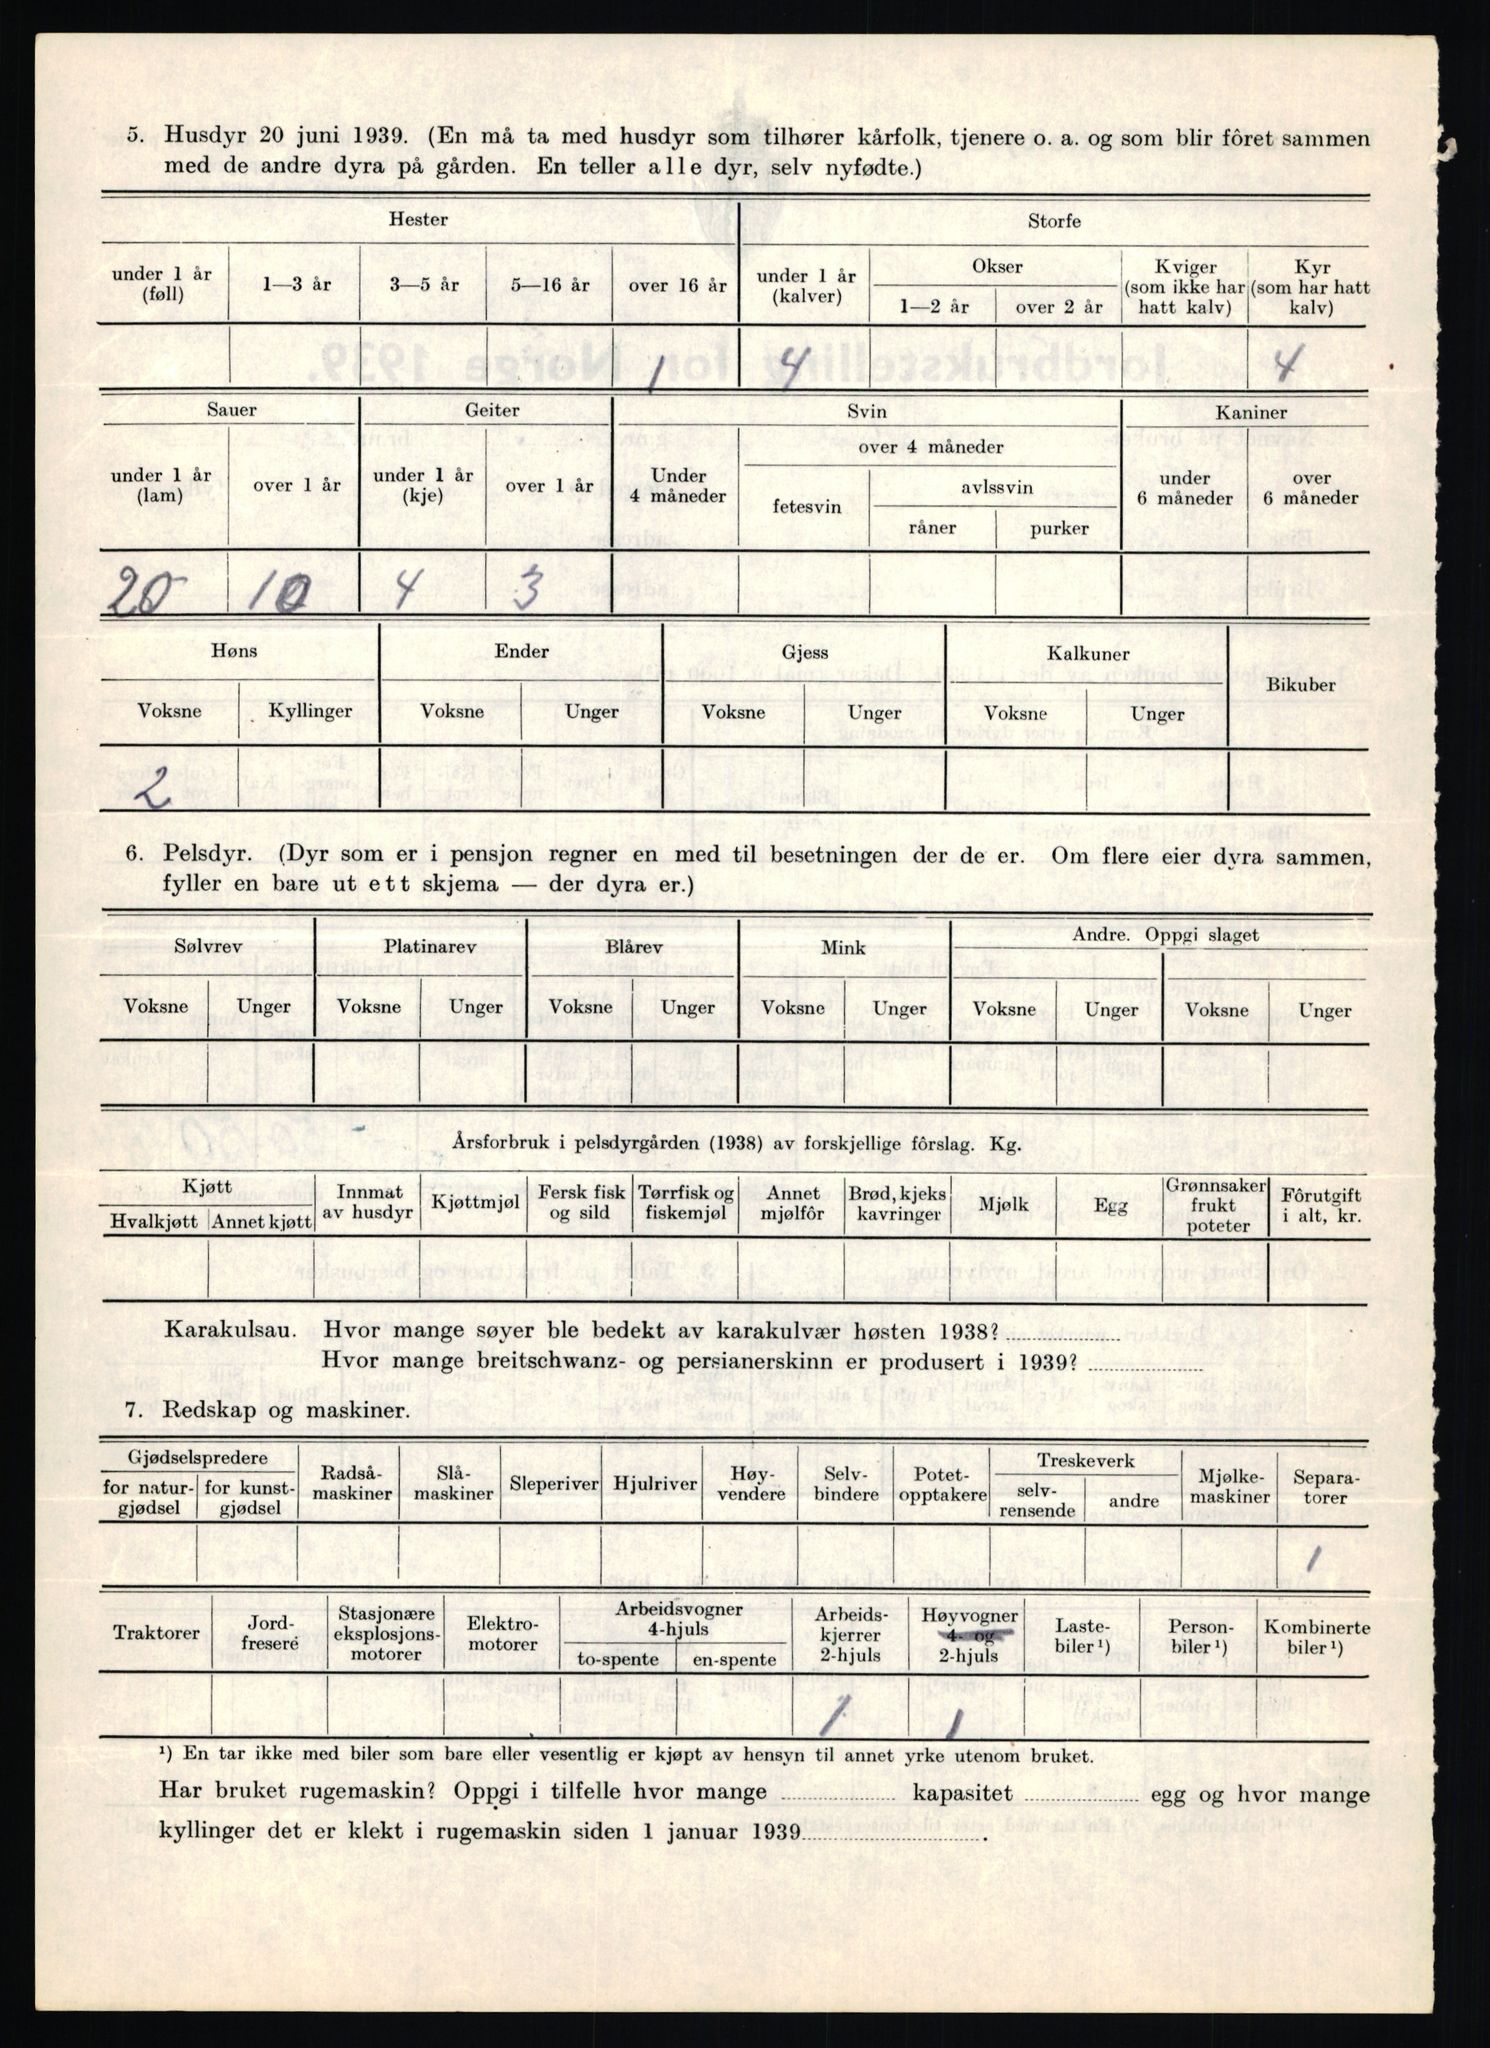 5. Husdyr 20 juni 1939. (En må ta med husdyr som tilhører kårfolk, tjenere o. a. og som blir fôret sammen
med de andre dyra på gården. En teller alle dyr, selv nyfødte.)
Hester Storfe
under 1 år (føll) 1—3 år 3—5 år 5—16 år over 16 år under 1 år (kalver) Okser 1—2 år over 2 år Kviger (som ikke har hatt kalv) Kyr (som har hatt kalv)
1 4 4
Sauer Geiter Svin Kaniner
under 1 år (lam) over 1 år under 1 år (kje) over 1 år Under 4 måneder over 4 måneder fetesvin avlssvin råner purker under 6 måneder over 6 måneder
20 10 4 3
Høns Ender Gjess Kalkuner Bikuber
Voksne Kyllinger Voksne Unger Voksne Unger Voksne Unger
2
6. Pelsdyr. (Dyr som er i pensjon regner en med til besetningen der de er. Om flere eier dyra sammen,
fyller en bare ut ett skjema — der dyra er.)
Sølvrev Platinarev Blårev Mink Andre. Oppgi slaget
Voksne Unger Voksne Unger Voksne Unger Voksne Unger Voksne Unger Voksne Unger
Årsforbruk i pelsdyrgården (1938) av forskjellige fôrslag. Kg.
Kjøtt Hvalkjøtt Annet kjøtt Innmat av husdyr Kjøttmjøl Fersk fisk og sild Tørrfisk og fiskemjøl Annet mjølfôr Brød, kjeks kavringer Mjølk Egg Grønnsaker frukt poteter Fôrutgift i alt, kr.
Karakulsau. Hvor mange søyer ble bedekt av karakulvær høsten 1938?
Hvor mange breitschwanz- og persianerskinn er produsert i 1939?
7. Redskap og maskiner.
Gjødselspredere for naturgjødsel for kunstgjødsel Radså-maskiner Slå-maskiner Sleperiver Hjulriver Høy-vendere Selv-bindere Potet-opptakere Treskeverk selv-rensende andre Mjølke-maskiner Separa-torer
1
Traktorer Jord-fresere Stasjonære eksplosjons-motorer Elektro-motorer Arbeidsvogner 4-hjuls to-spente en-spente Arbeids-kjerrer 2-hjuls Høyvogner 4- og 2-hjuls Laste-biler¹) Person-biler¹) Kombinerte biler¹)
1 1
¹) En tar ikke med biler som bare eller vesentlig er kjøpt av hensyn til annet yrke utenom bruket.
Har bruket rugemaskin? Oppgi i tilfelle hvor mange kapasitet egg og hvor mange
kyllinger det er klekt i rugemaskin siden 1 januar 1939.